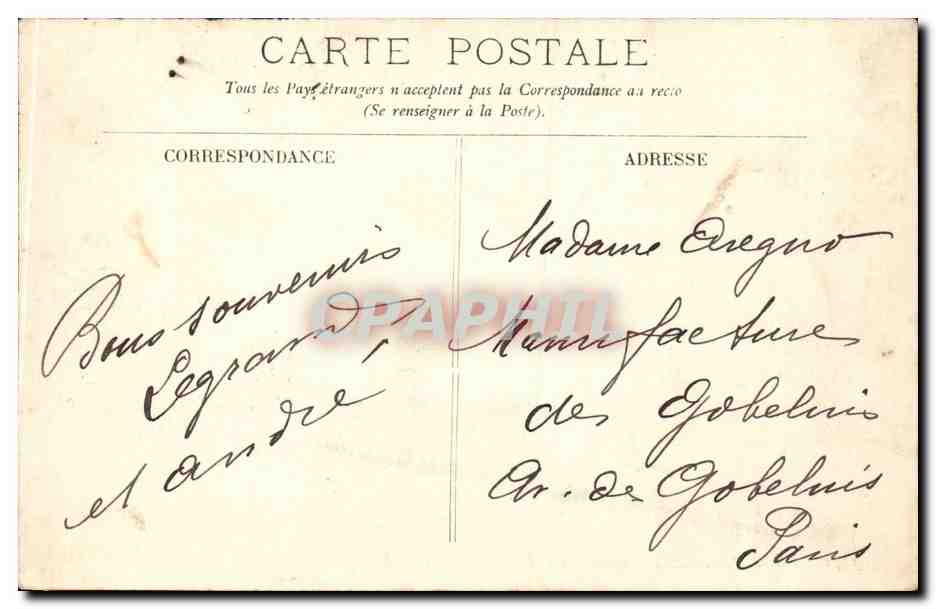 CARTE POSTALE
Tous les Pays étrangers n'acceptent pas la Correspondance au recto
(Se renseigner à la Poste).
CORRESPONDANCE
Bons souvenirs
Legrand
et andré
ADRESSE
Madame Aregno
Manufacture
des Gobelins
Av. des Gobelins
Paris
CPAPHIL